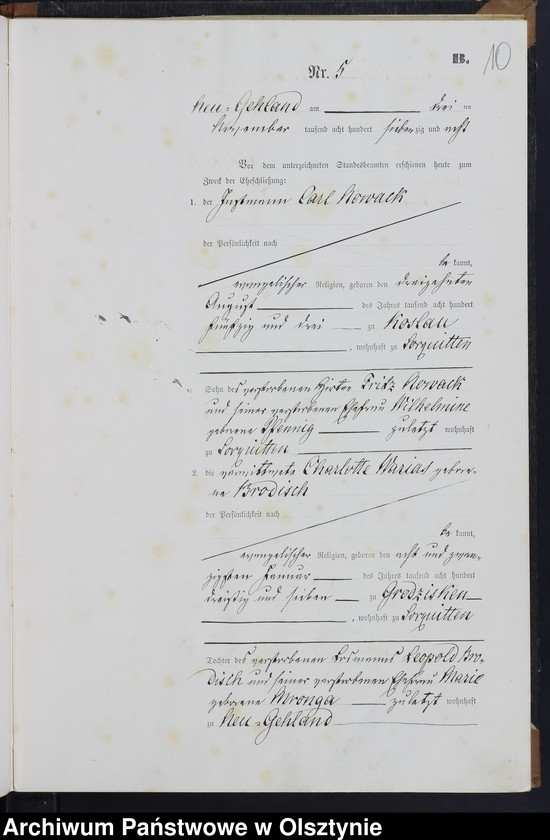 B. 10
Nr. 5
Neu-Gehland am drei ten
November tausend acht hundert siebenzig und acht
Vor dem unterzeichneten Standesbeamten erschienen heute zum
Zweck der Eheschließung:
1. der Instmann Carl Nowack
der Persönlichkeit nach
be kannt,
evangelischer Religion, geboren den dreizehnten
August des Jahres tausend acht hundert
fünfzig und drei zu Koslau
, wohnhaft zu Sorquitten
Sohn des verstorbenen Hirten Fritz Nowack
und seiner verstorbenen Ehefrau Wilhelmine
geborene Pfennig zuletzt wohnhaft
zu Sorquitten
2. die verwittwete Charlotte Warias gebore-
ne Brodisch
der Persönlichkeit nach
be kannt,
evangelischer Religion, geboren den acht und zwan-
zigsten Januar des Jahres tausend acht hundert
dreißig und sieben zu Grodzisken
, wohnhaft zu Sorquitten
Tochter des verstorbenen Losmanns Leopold Bro-
disch und seiner verstorbenen Ehefrau Marie
geborene Mronga zuletzt wohnhaft
zu Neu-Gehland
Archiwum Państwowe w Olsztynie